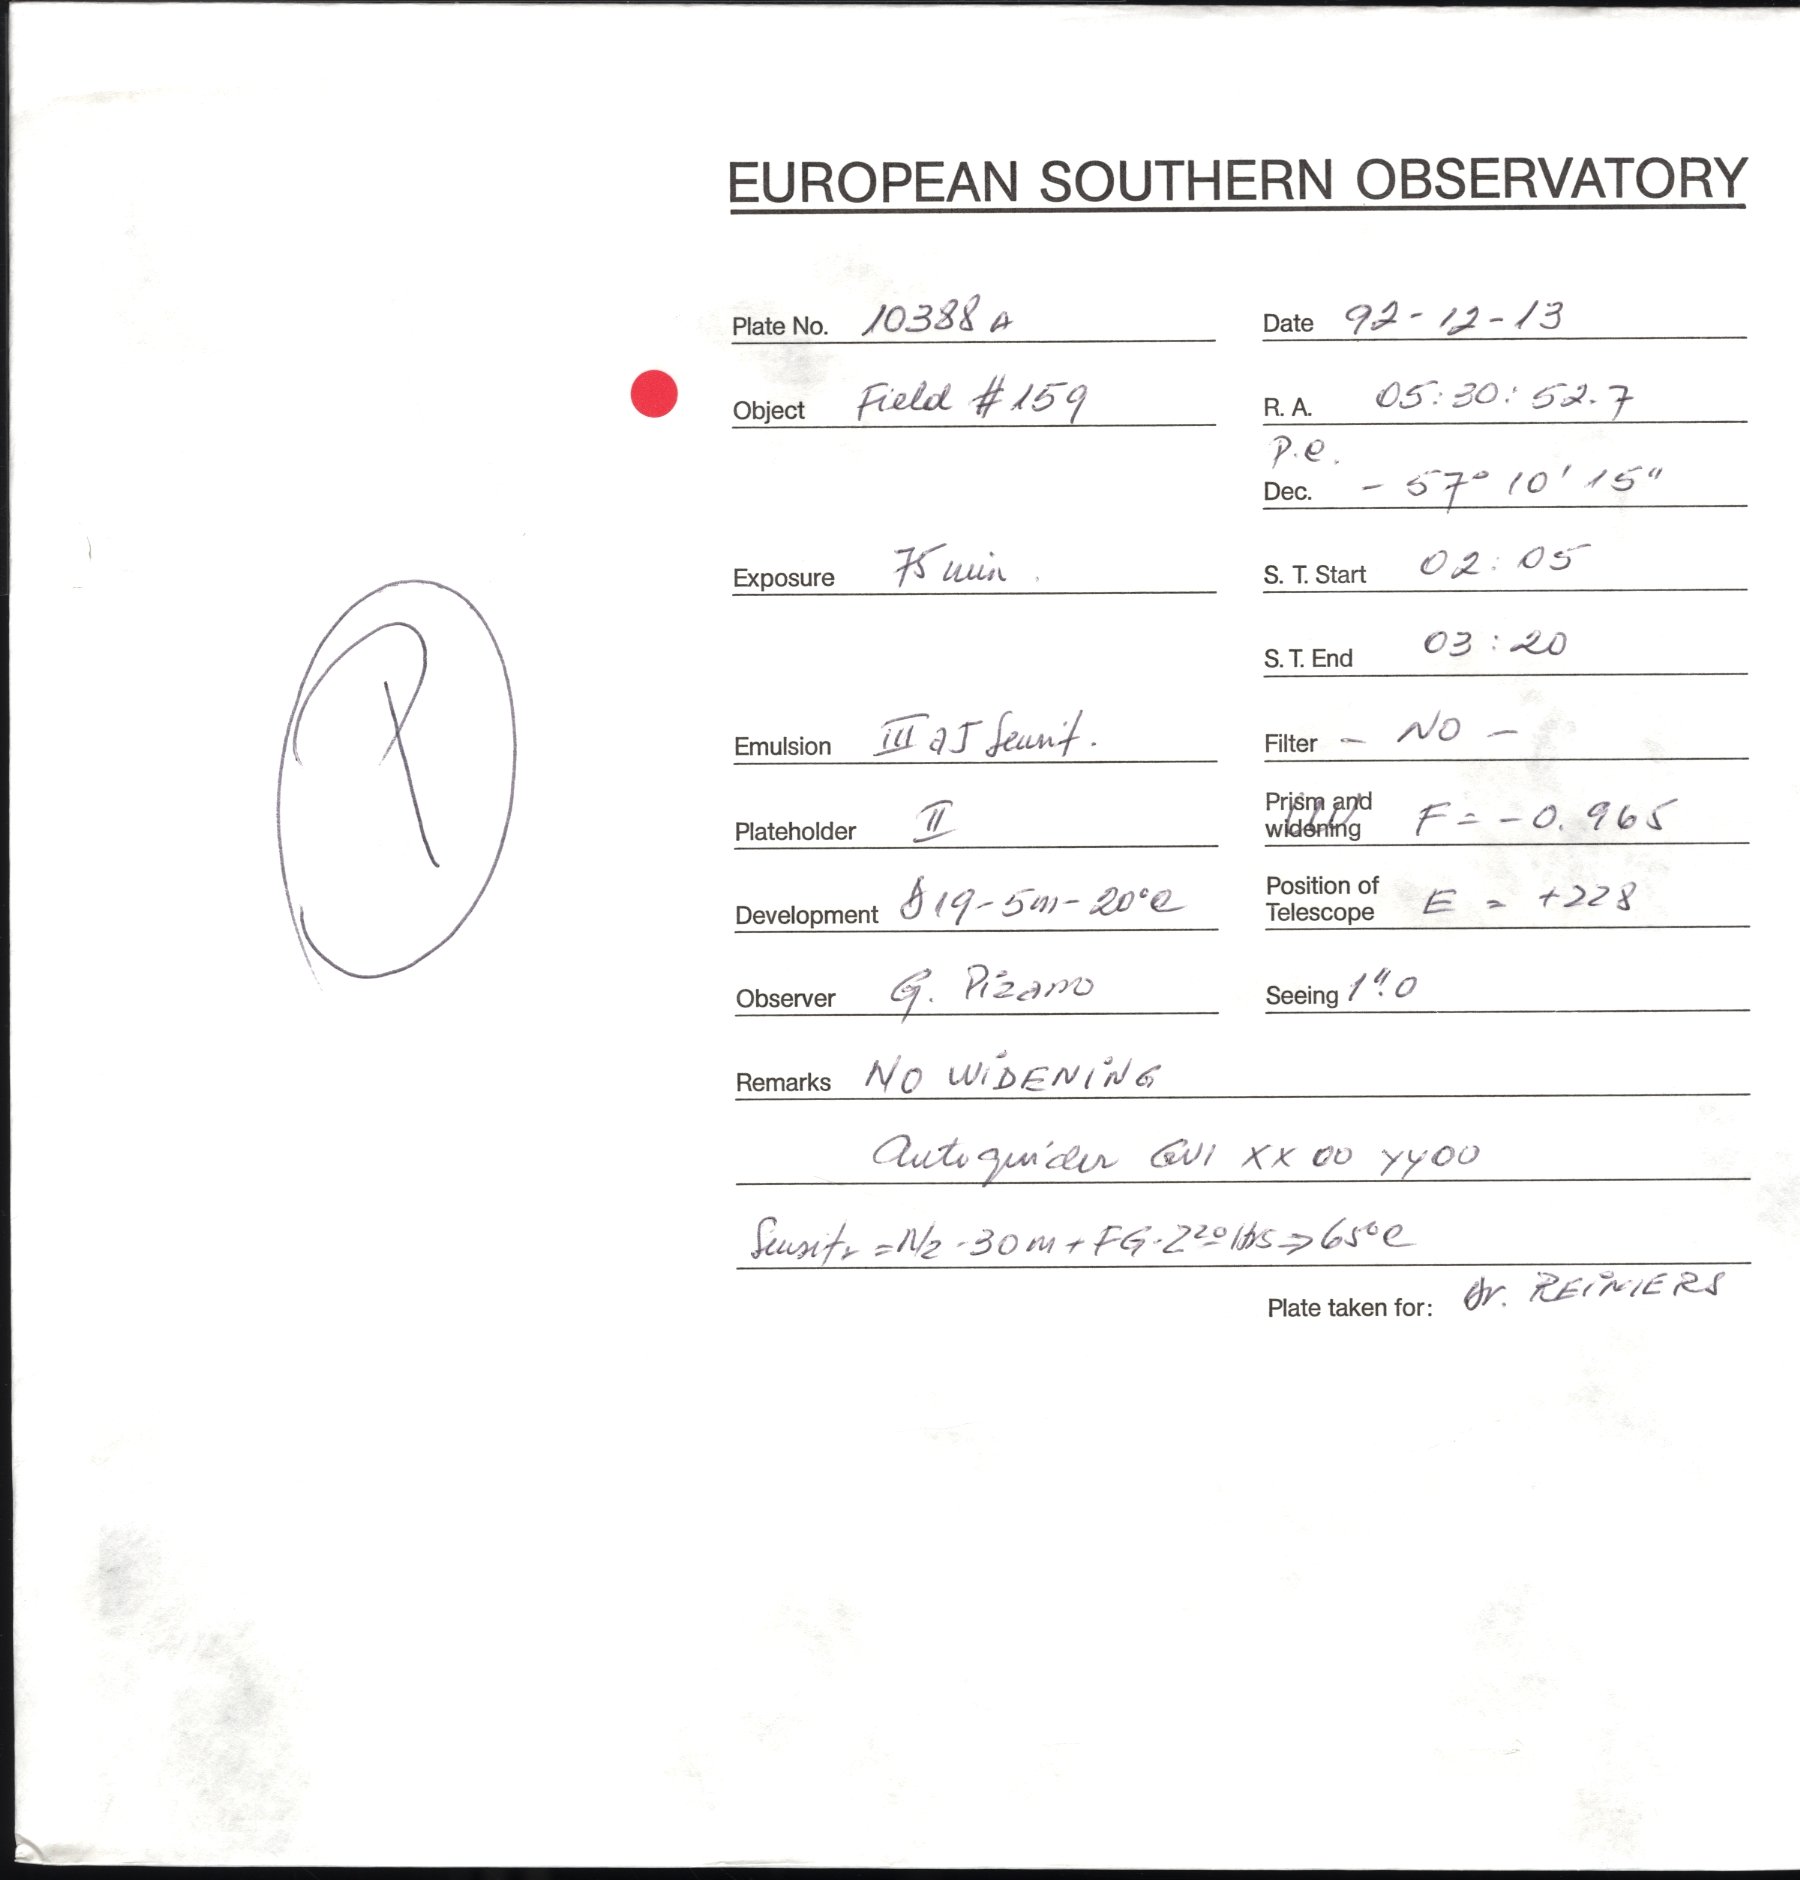 EUROPEAN SOUTHERN OBSERVATORY
Plate No. 10388 A
Date 92-12-13
Object Field #159
R. A. 05:30:52.7
p.e.
Dec. - 57° 10' 15"
Exposure 75 min.
S. T. Start 02:05
S. T. End 03:20
Emulsion III aJ Sensit.
Filter - NO -
Plateholder II
Prism and widening F = - 0.965
Development D19-5m-20°C
Position of Telescope E = +228
Observer G. Pizarro
Seeing 1".0
Remarks NO WiDENiNG
Autoguider GV1 XX 00 YY00
= N2 - 30m + FG. 220 lbs => 65°C
Plate taken for: Dr. REiMERS
R